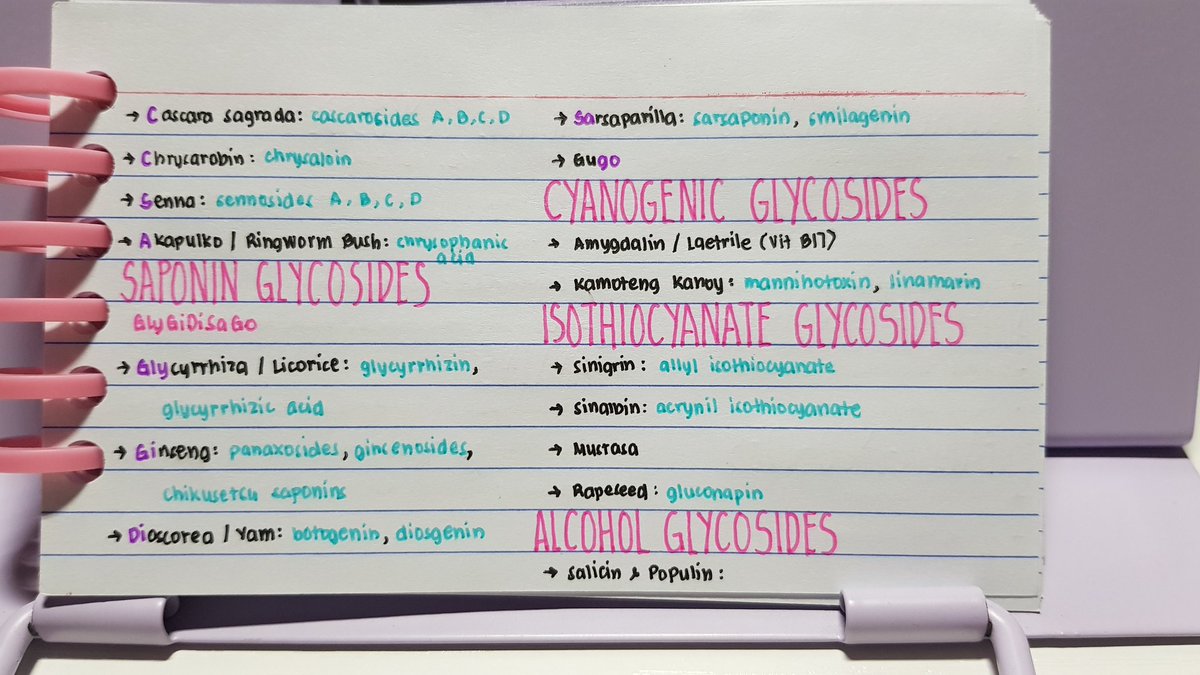 → Cascara sagrada: cascarosides A, B, C, D
→ Chrysarobin: chrysaloin
→ Senna: sennosides A, B, C, D
→ Akapulko / Ringworm Bush: chrysophanic
acid
SAPONIN GLYCOSIDES
GlyGiDiSaGo
→ Glycyrrhiza / Licorice: glycyrrhizin,
glycyrrhizic acid
→ Ginseng: panaxosides, ginsenosides,
chikusetsu saponins
→ Dioscorea / Yam: botogenin, diosgenin
→ Sarsaparilla: sarsaponin, smilagenin
→ Gugo
CYANOGENIC GLYCOSIDES
→ Amygdalin / Laetrile (Vit B17)
→ Kamoteng Kahoy: mannihotoxin, linamarin
ISOTHIOCYANATE GLYCOSIDES
→ Sinigrin: allyl isothiocyanate
→ Sinalbin: acrynil isothiocyanate
→ Mustasa
→ Rapeseed: gluconapin
ALCOHOL GLYCOSIDES
→ Salicin & Populin: